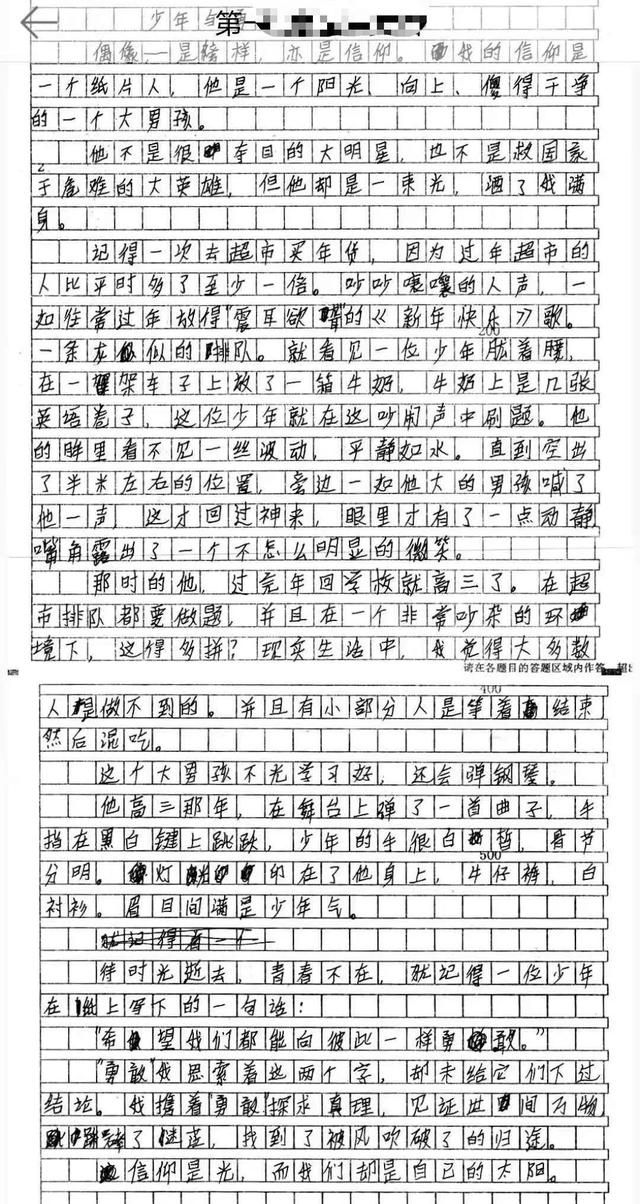 少年与
第一
偶像,一是榜样,亦是信仰。我的信仰是
一个纸片人,他是一个阳光、向上、傻得干净
的一个大男孩。
他不是很夺目的大明星,也不是救国家
于危难的大英雄,但他却是一束光,洒了我满
身。
记得一次去超市买年货,因为过年超市的
人比平时多了至少一倍。吵吵嚷嚷的人声,一
如往常过年放得"震耳欲聋"的《新年快乐》歌。
200
一条龙似的排队。就看见一位少年肱着腰,
在一架车子上放了一箱牛奶,牛奶上是几张
英语卷子,这位少年就在这吵闹声中刷题。他
的眸里看不见一丝波动,平静如水。直到空出
了半米左右的位置,旁边一如他大的男孩喊了
他一声,这才回过神来,眼里才有了一点动静,
嘴角露出了一个不怎么明显的微笑。
那时的他,过完年回学校就高三了。在超
市排队都要做题,并且在一个非常吵杂的环
境下,这得多拼?现实生活中,我觉得大多数
请在各题目的答题区域内作答,超
400
人是做不到的。并且有小部分人是等着高结束
然后混吃。
这个大男孩不光学习好,还会弹钢琴。
他高三那年,在舞台上弹了一首曲子,手
挡在黑白键上跳跃,少年的手很白皙,骨节
500
分明。灯印在了他身上,牛仔裤,白
衬衫。眉目间满是少年气。
待时光逝去,青春不在,就记得一位少年
在纸上写下的一句话:
"希望我们都能向彼此一样勇敢。"
"勇敢"我思索着这两个字,却未给它们下过
结论。我携着"勇敢"探求真理,见证世间万物,
了迷茫,找到了被风吹破了的归途。
信仰是光,而我们却是自己的太阳。